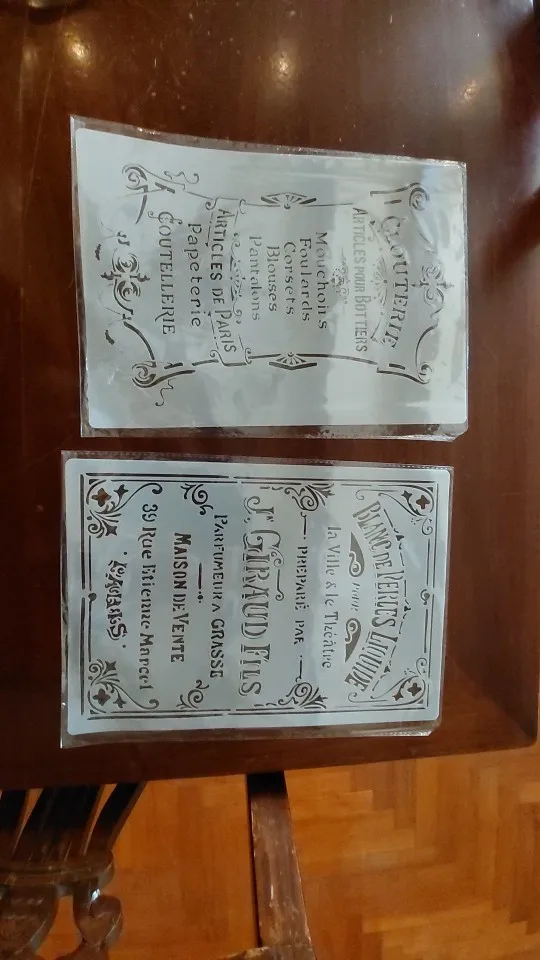 CLOUTERIE
ARTICLES POUR BOTTIERS
Mouchoirs
Foulards
Corsets
Blouses
Pantalons
ARTICLES DE PARIS
Papeterie
COUTELLERIE
BLANC DE PERLES LIQUIDE
pour
la Ville & le Théâtre
PREPARÉ PAR
Jh GIRAUD FILS
PARFUMEUR A GRASSE
MAISON DE VENTE
39 Rue Etienne Marcel
PARIS